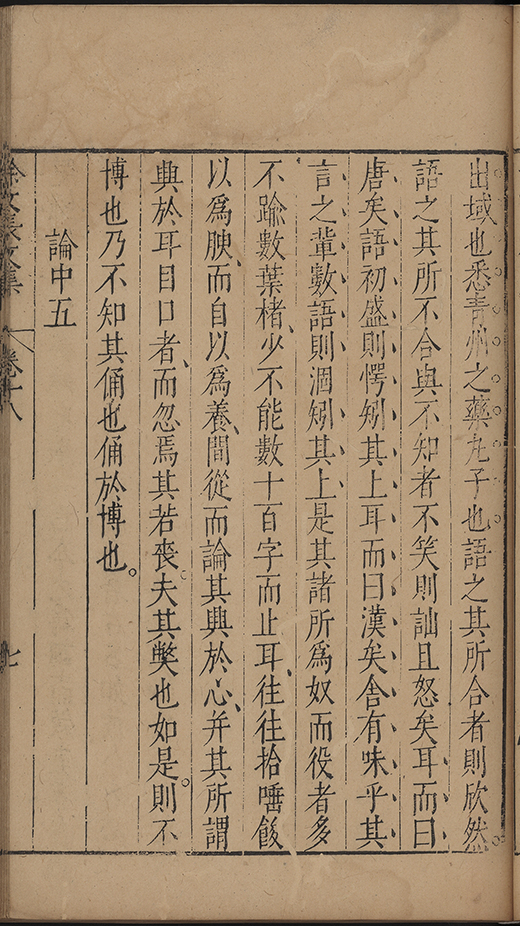 出域也悉青州之藥丸子也語之其所合者則欣然
語之其所不合與不知者不笑則訕且怒矣耳而曰
唐矣語初盛則愕矧其上耳而曰漢矣舍有味乎其
言之輩數語則涸矧其上是其諸所爲奴而役者多
不踰數葉楮少不能數十百字而止耳往往拾唾餕
以爲腴而自以爲養間從而論其與於心并其所謂
與於耳目口者而忽焉其若喪夫其獘也如是則不
博也乃不知其俑也俑於博也。
論中五
徐文長文集
卷十八
七